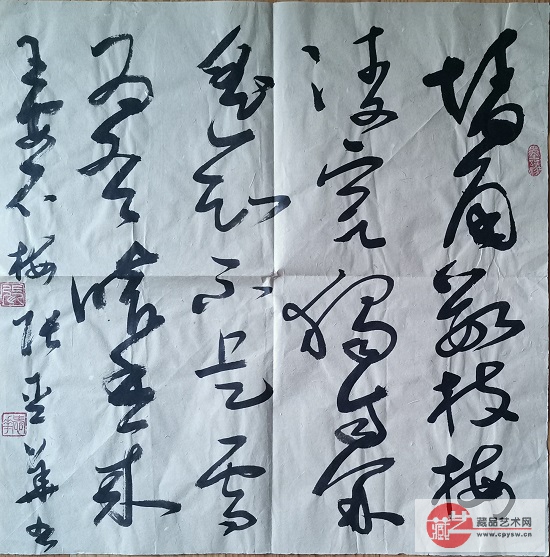 墙角数枝梅
凌寒独自开
遥知不是雪
为有暗香来
王安石梅 张 华书
藏艺
藏品艺术网
www.cpysw.cn